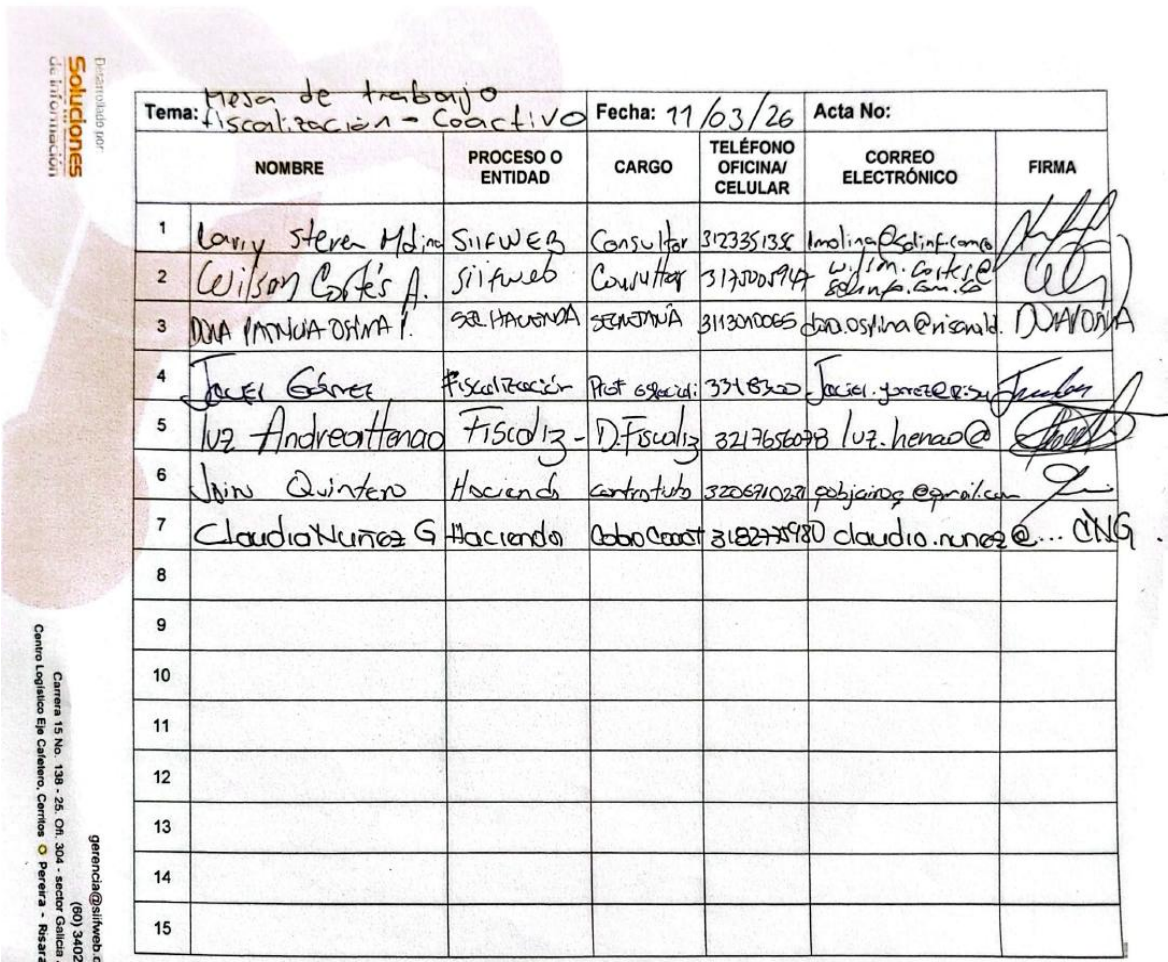 Desarrollado por
Soluciones
de información
Mesa de trabajo
Tema: fiscalización - Coactivo Fecha: 11/03/26 Acta No:
NOMBRE PROCESO O ENTIDAD CARGO TELÉFONO OFICINA/ CELULAR CORREO ELECTRÓNICO FIRMA
1 Larry Steven Molina SIIFWEB Consultor 3123351356 lmolina@solinf.com.co
2 Wilson Cortés A. siifweb Consultor 3175005947 wilson.cortes@
solinfo.com.co
3 DORA PATRICIA OSPINA P. SEC. HACIENDA SECRETARIA 3113010065 dora.ospina@risarald.
4 Fiscalización Prof especial: 3348300
5 luz Andrea Henao Fiscaliz- D.Fiscaliz 3217656078 luz.henao@
6 Quintero Hacienda contratista 3206910221 gobjairoq@gmail.com
7 Claudia Nuñez G Hacienda Cobro Coact claudia.nunez@... CNG
8
9
10
11
12
13
14
15
gerencia@siifweb.c
(60) 3402
Carrera 15 No. 138 - 25. Ofi. 304 - sector Galicia
Centro Logístico Eje Cafetero, Cerritos Pereira - Risara